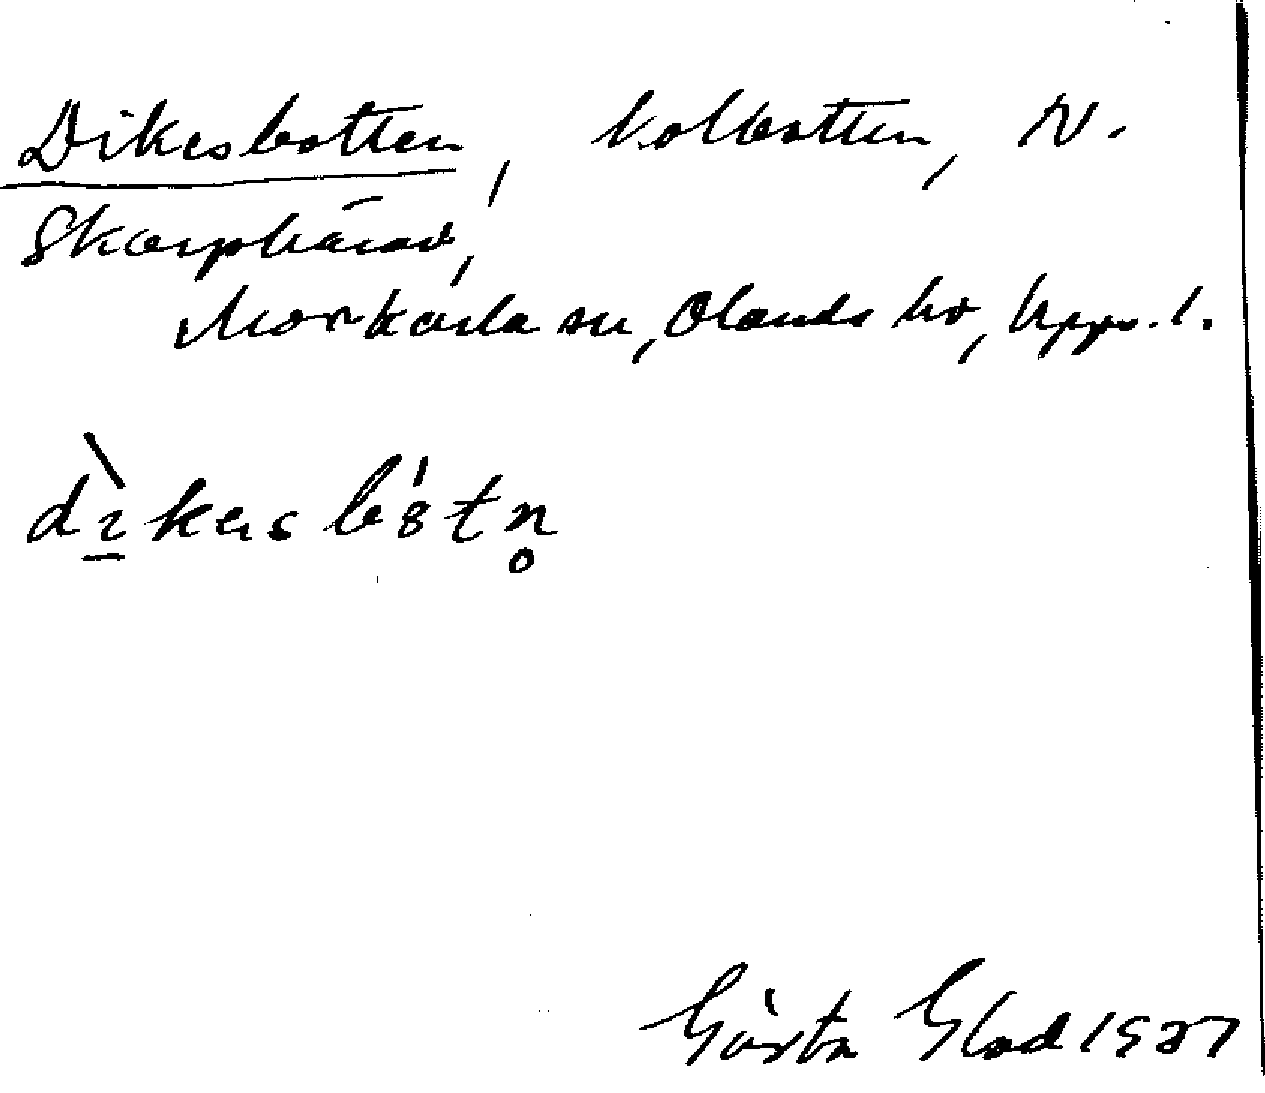 Dikesbotten, kolbotten, N.
Skarphärad,
Morkarla sn, Olands hd, Upps. l.
dìkesbótn̥
Gösta Glad 1927